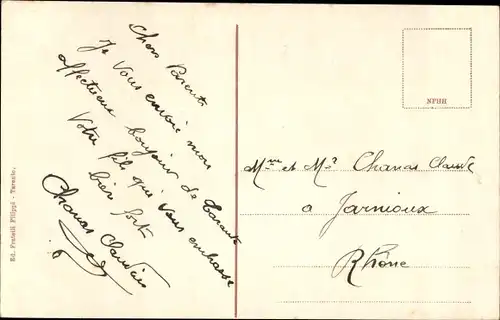 Chers Parents
Je vous envoie mon
affectueux bonjour de Tarente
Votre fils qui vous embrasse
bien fort
Chanas Claudius
NPHH
Mme et Mr Chanas Claude
a Jarnioux
Rhône
Ed. Fratelli Filippi - Taranto.